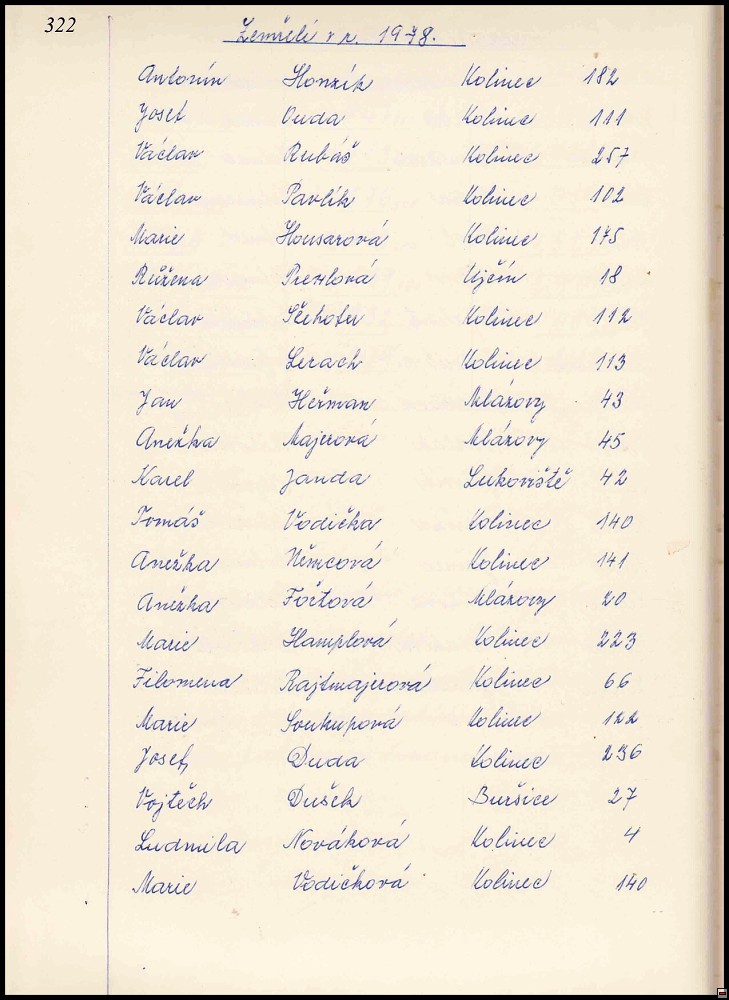 322
Zemřelí v r. 1978.
Antonín Honzík Kolinec 182
Josef Duda Kolinec 111
Václav Rubáš Kolinec 257
Václav Pavlík Kolinec 102
Marie Housarová Kolinec 175
Růžena Újčín 18
Václav Kolinec 112
Václav Lerach Kolinec 113
Jan Heřman Mlázovy 43
Anežka Majerová Mlázovy 45
Karel Janda Lukoviště 42
Tomáš Vodička Kolinec 140
Anežka Němcová Kolinec 141
Anežka Foitová Mlázovy 20
Marie Hamplová Kolinec 223
Filomena Rajtmajerová Kolinec 66
Marie Soukupová Kolinec 122
Josef Duda Kolinec 236
Vojtěch Dušek Buršice 27
Ludmila Nováková Kolinec 4
Marie Vodičková Kolinec 140